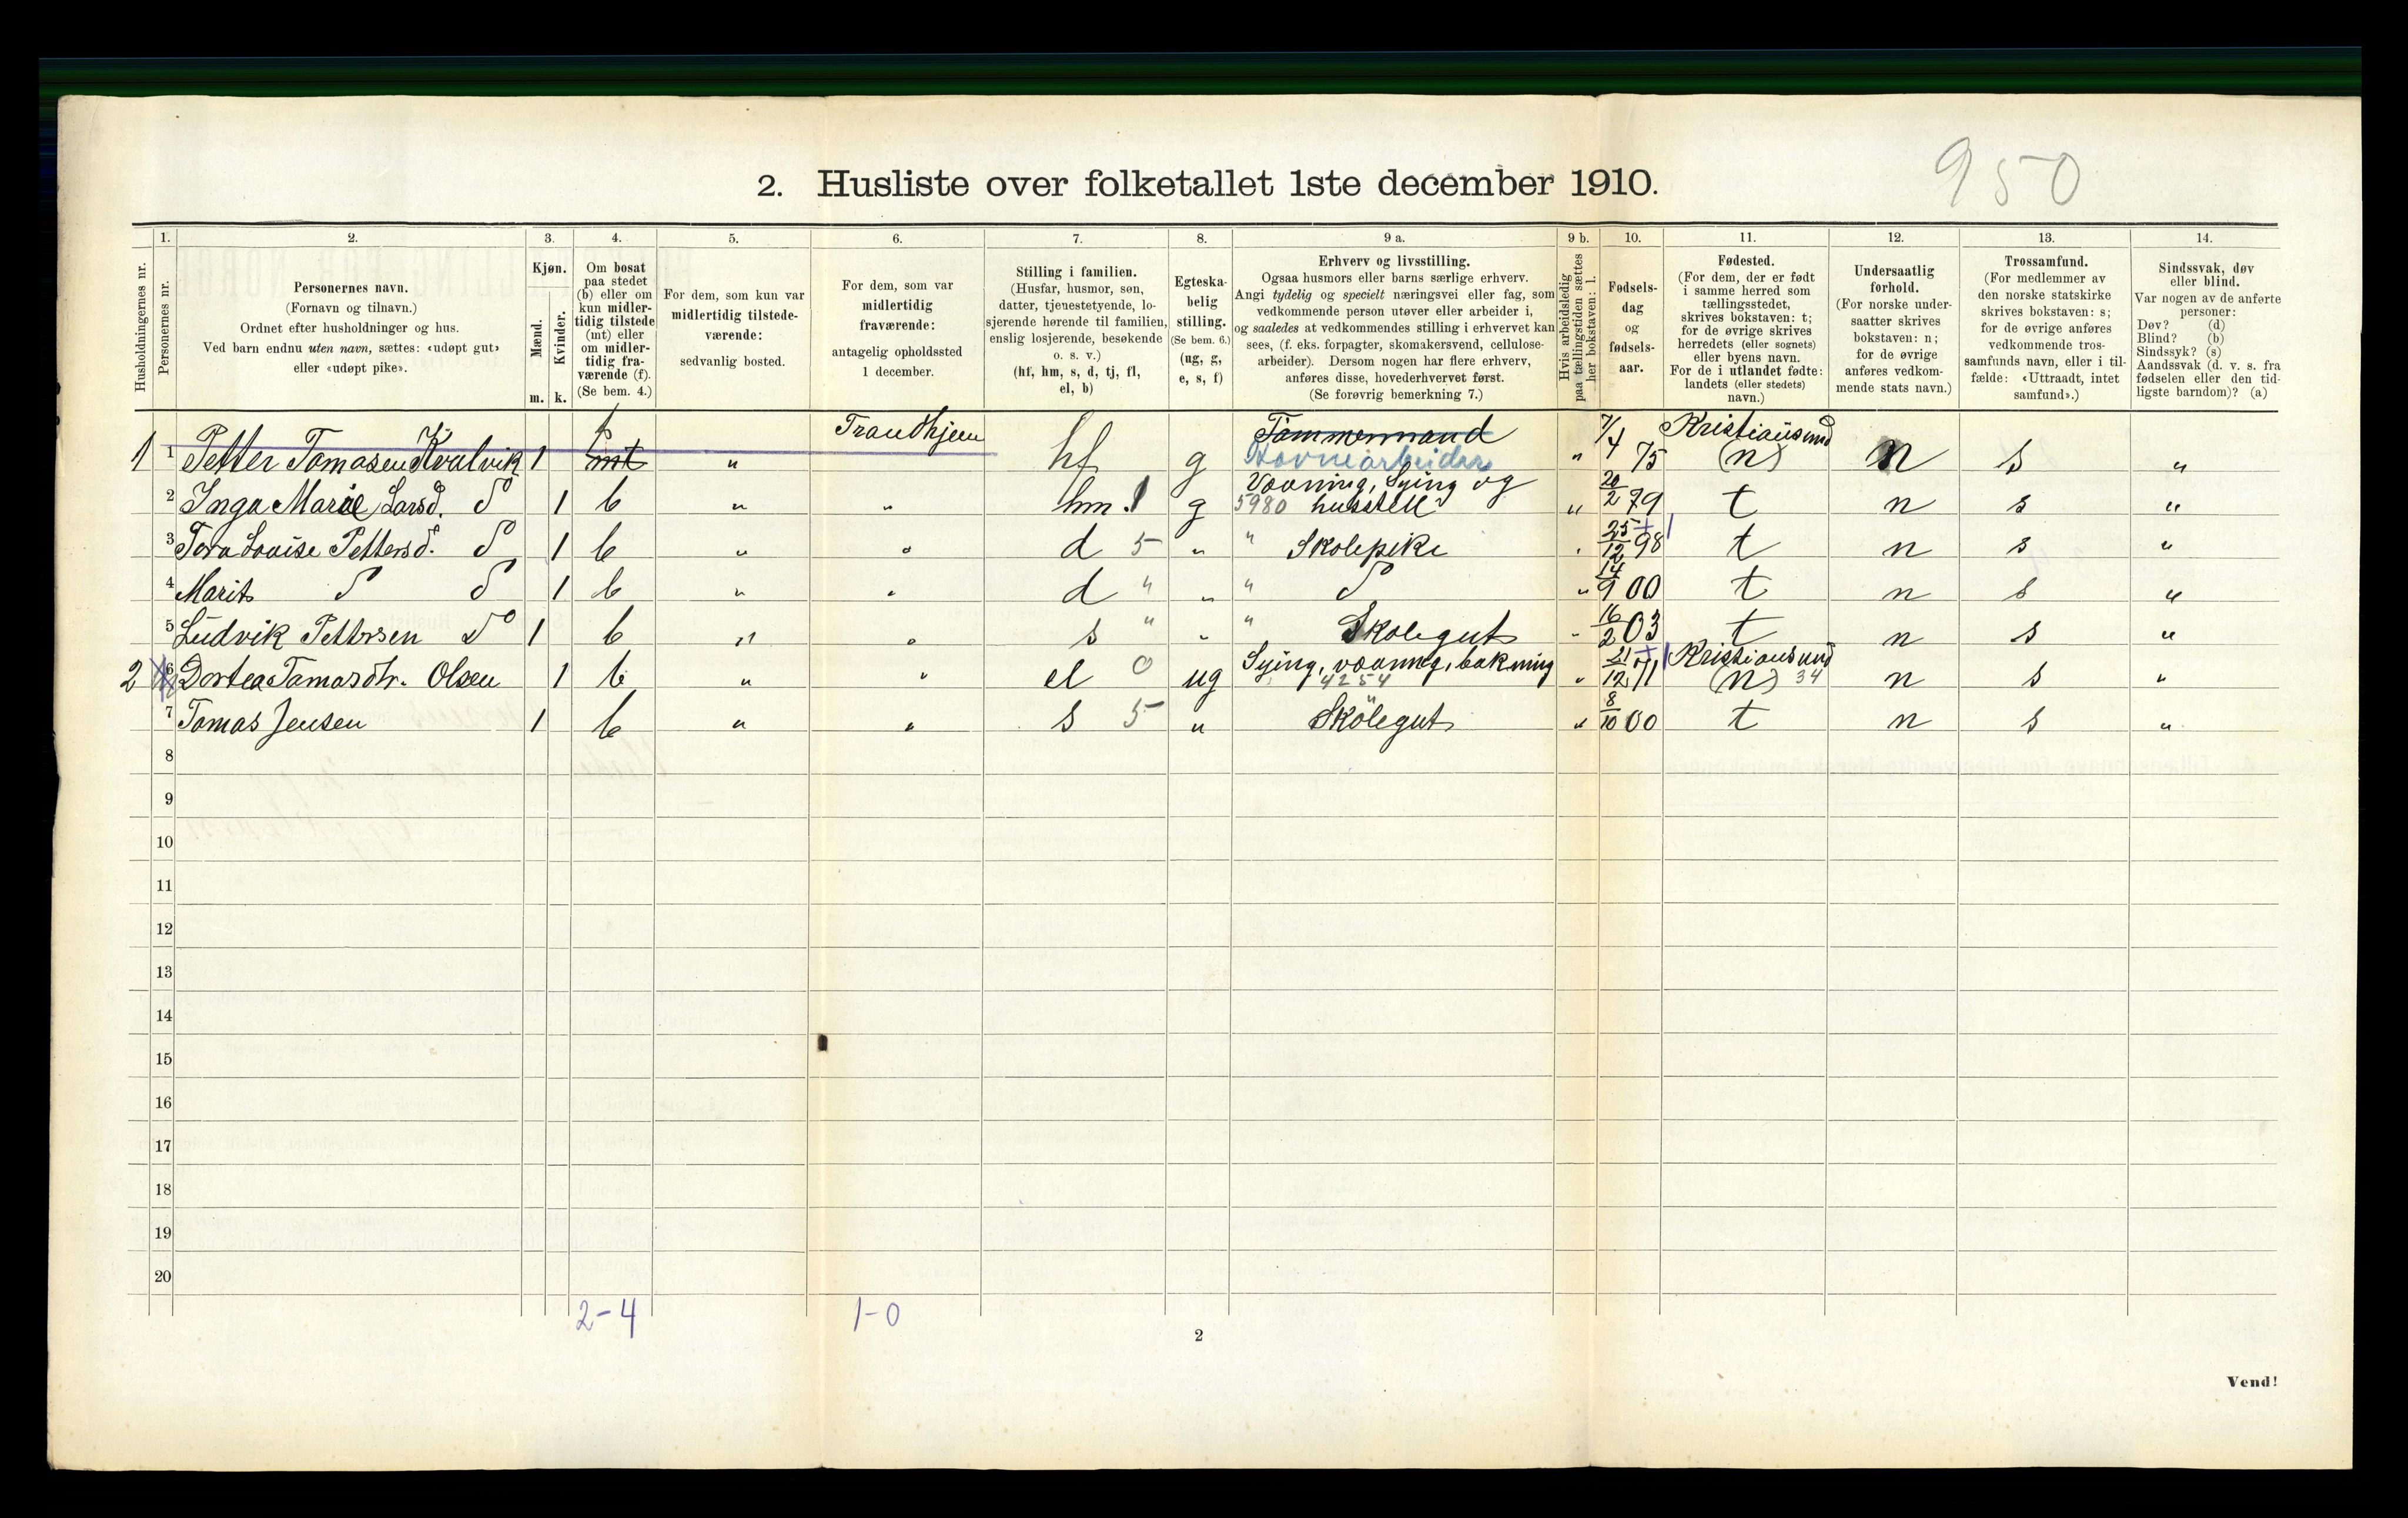 950
2. Husliste over folketallet 1ste december 1910.
1. 2. 3. 4. 5. 6. 7. 8. 9 a. 9 b. 10. 11. 12. 13. 14.
Husholdningernes nr.
Personernes nr.
Personernes navn.
(Fornavn og tilnavn.)
Ordnet efter husholdninger og hus.
Ved barn endnu uten navn, sættes: «udøpt gut»
eller «udøpt pike».
Kjøn.
Mænd.
Kvinder.
m. k.
Om bosat
paa stedet
(b) eller om
kun midler-
tidig tilstede
(mt) eller
om midler-
tidig fra-
værende (f).
(Se bem. 4.)
For dem, som kun var
midlertidig tilstede-
værende:
sedvanlig bosted.
For dem, som var
midlertidig
fraværende:
antagelig opholdssted
1 december.
Stilling i familien.
(Husfar, husmor, søn,
datter, tjenestetyende, lo-
sjerende hørende til familien,
enslig losjerende, besøkende
o. s. v.)
(hf, hm, s, d, tj, fl,
el, b)
Egteska-
belig
stilling.
(Se bem. 6.)
(ug, g,
e, s, f)
Erhverv og livsstilling.
Ogsaa husmors eller barns særlige erhverv.
Angi tydelig og specielt næringsvei eller fag, som
vedkommende person utøver eller arbeider i,
og saaledes at vedkommendes stilling i erhvervet kan
sees, (f. eks. forpagter, skomakersvend, cellulose-
arbeider). Dersom nogen har flere erhverv,
anføres disse, hovederhvervet først.
(Se forøvrig bemerkning 7.)
Hvis arbeidsledig
paa tællingstiden sættes
her bokstaven: l.
Fødsels-
dag
og
fødsels-
aar.
Fødested.
(For dem, der er født
i samme herred som
tællingsstedet,
skrives bokstaven: t;
for de øvrige skrives
herredets (eller sognets)
eller byens navn.
For de i utlandet fødte:
landets (eller stedets)
navn.)
Undersaatlig
forhold.
(For norske under-
saatter skrives
bokstaven: n;
for de øvrige
anføres vedkom-
mende stats navn.)
Trossamfund.
(For medlemmer av
den norske statskirke
skrives bokstaven: s;
for de øvrige anføres
vedkommende tros-
samfunds navn, eller i til-
fælde: «Uttraadt, intet
samfund».)
Sindssvak, døv
eller blind.
Var nogen av de anførte
personer:
Døv? (d)
Blind? (b)
Sindssyk? (s)
Aandssvak (d. v. s. fra
fødselen eller den tid-
ligste barndom)? (a)
1 1 Petter Tomasen Kvalvik 1 mt f " Trondhjem hf g Tømmermand Havnearbeider " 7/4 75 Kristiansund (n) n s "
2 Inga Marie Larsd. do 1 b " " hm. 1 g Vævning, Sying og 5980 husstell " 20/2 79 t n s "
3 Tora Lovise Pettersd. do 1 b " " d 5 " " Skolepike " 25/12 98 t n s "
4 Marit do do 1 b " " d " " " do " 14/9 00 t n s "
5 Ludvik Pettersen do 1 b " " s " " " Skolegut " 16/2 03 t n s "
2 6 Dortea Tomasdtr. Olsen 1 b " " el 0 ug Sying, vævning, bakning 4254 " 21/12 71 Kristiansund (n) 34 n s "
7 Tomas Jensen 1 b " " s 5 " Skolegut " 8/10 00 t n s "
8
9
10
11
12
13
14
15
16
17
18
19
20
2-4 1-0
2
Vend!